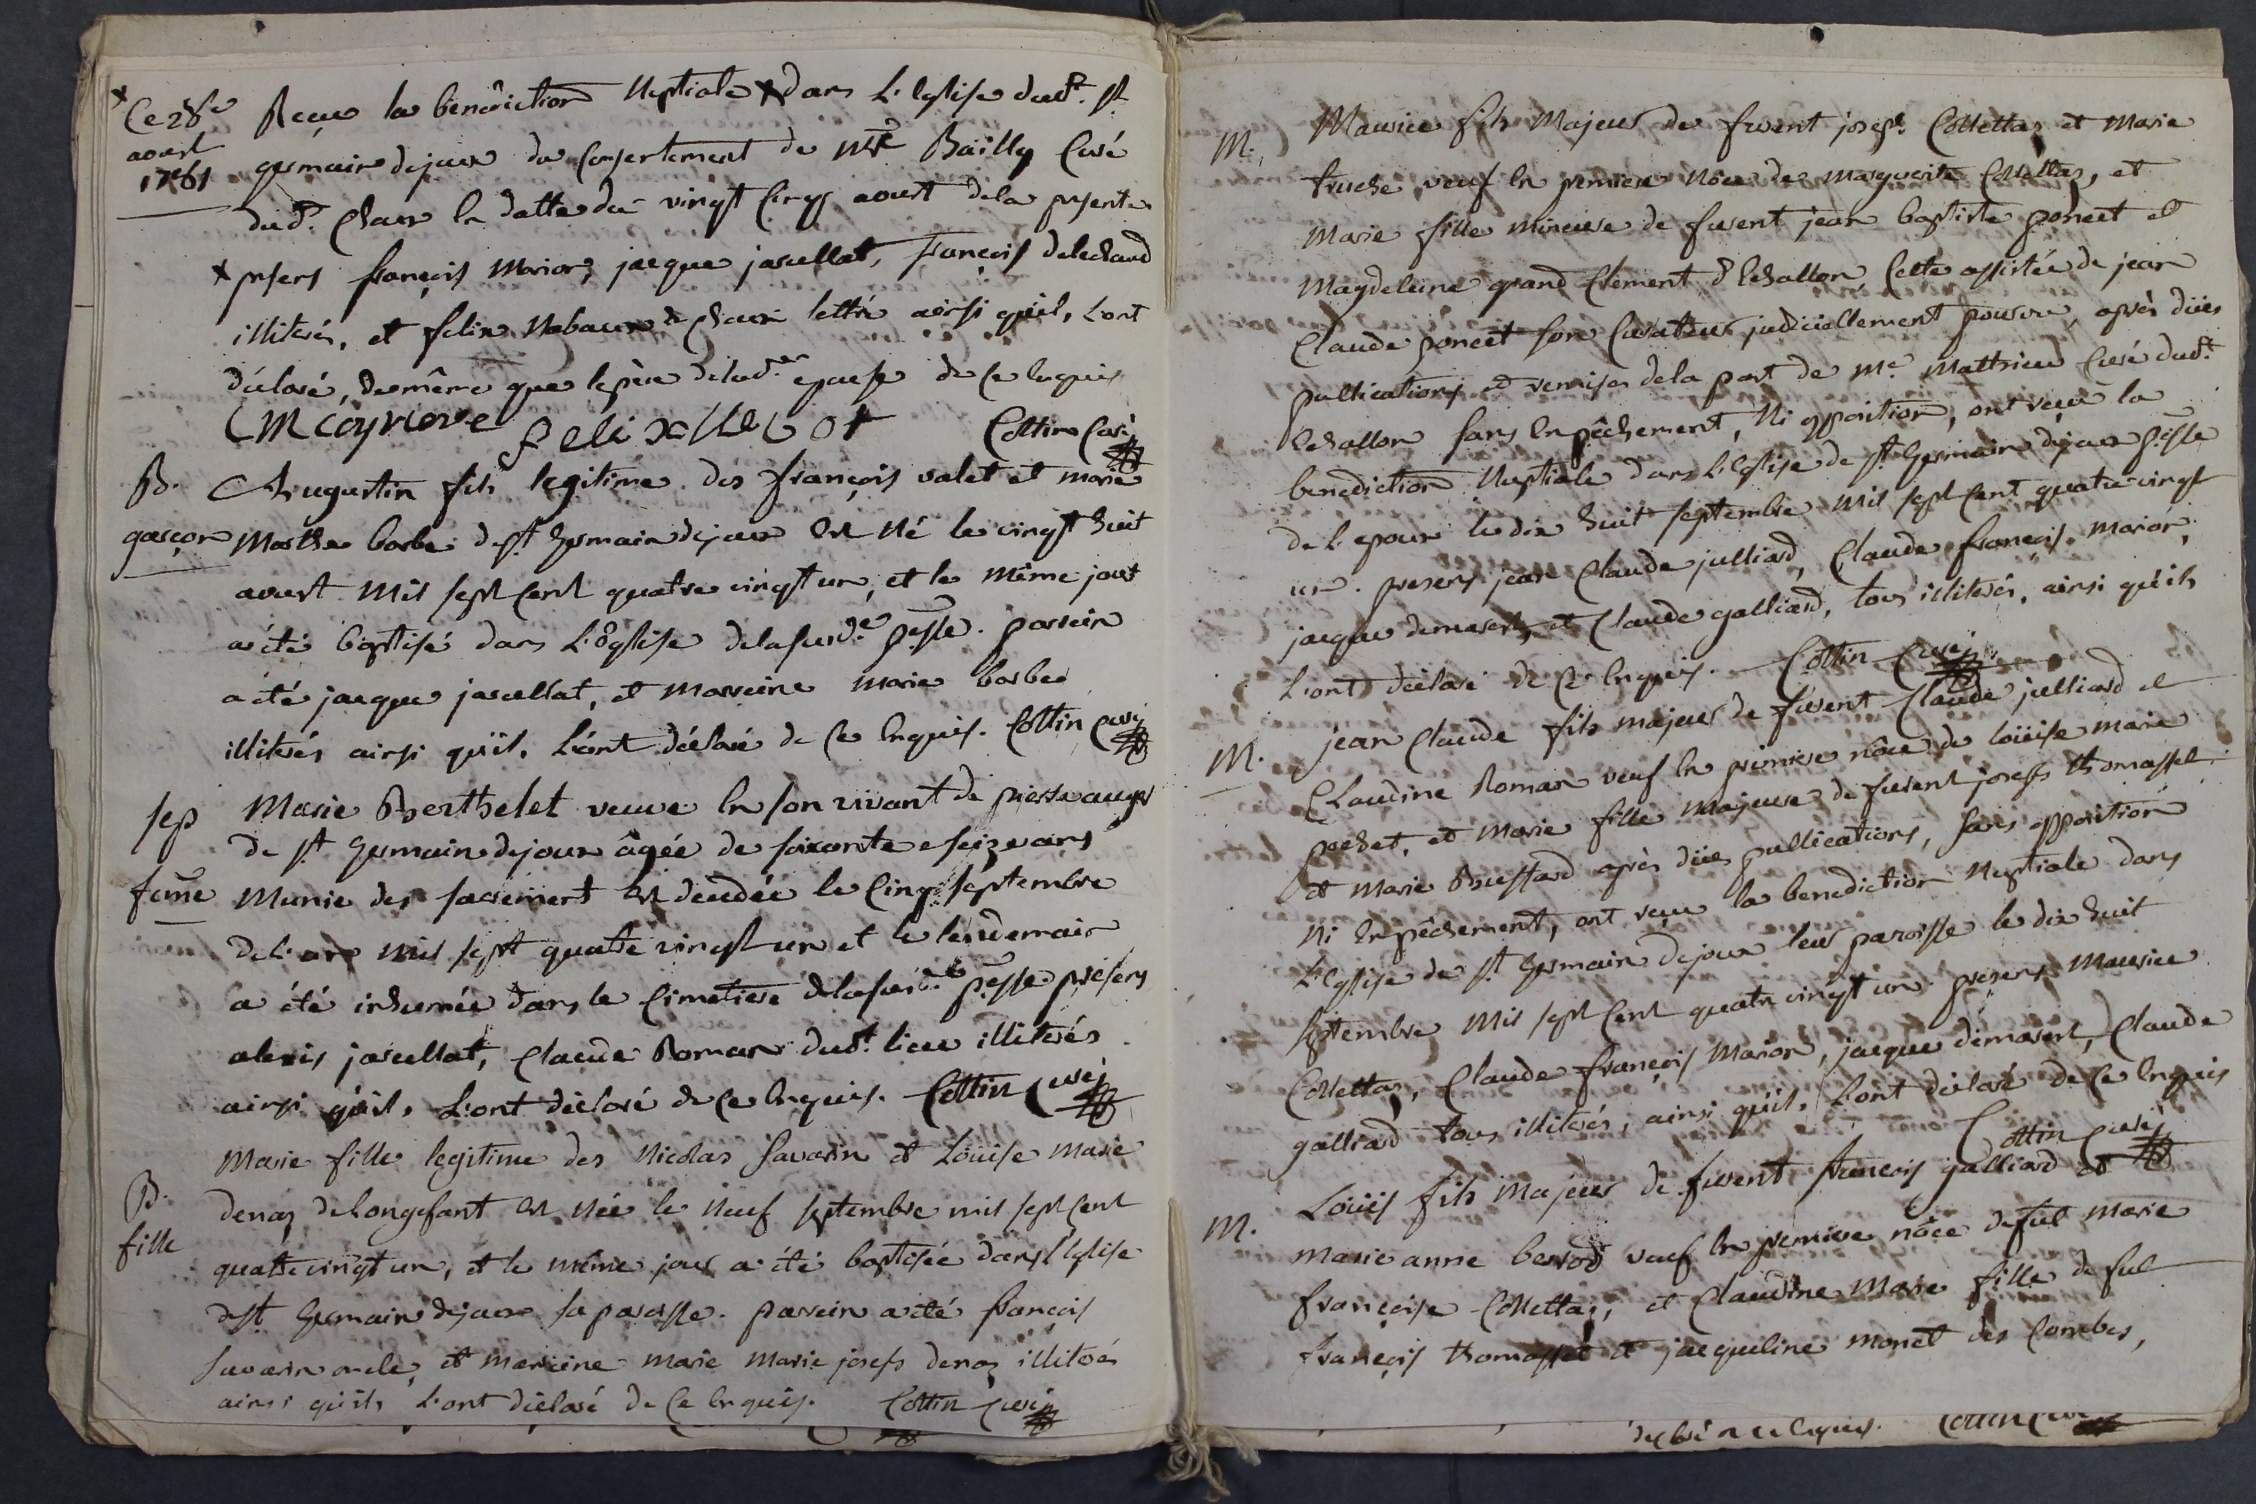 x Ce 28e aoust 1781
Reçu la benèriction Nuptiale x dans L'eglise dudt. st
germain dejoux du consentement de mre Bailly Curé
dud. Charix en datte du vingt cinq aoust dela presente
x presens françois Marion, jacque jacullat, françois delechaud
illiterés, et felix Nabaum de charix lettré ainsi qu'il, L'ont
déclaré, de même que le père de lad. epouse de ce enquis
CM coyriere felix Cottin Curé
B. garçon
Augustin fils legitime des françois valet et marie
Marthe barbe de st germain dejoux est Né le vingt huit
aoust mil sept cent quatre vingt un, et le même jour
a été baptisé dans L'Eglise de la susd.e p.sse. parein
a été jacque jacullat, et Mareine marie barbe
illiterés ainsi qu'il, L'ont déclaré de ce enquis. Cottin Curé
sep femme
Marie Berthelet veuve en son vivant de pierre auger
de st germain dejoux âgée de soixante e seize ans
Munie des sacrement est décédée le cinq septembre
de L'an mil sept quatre vingt un et le lendemain
a été inhumée dans le Cimetière de la susd.e p.sse presens
alexis jacullat, claude Roman dudt. lieu illiterés
ainsi qu'il, L'ont déclaré de ce enquis. Cottin Curé
B. fille
Marie fille legitime des Nicolas Savarin et Loüise Marie
denaz de longefant est Née le Neuf septembre mil sept cent
quatre vingt un, et le même jour a été baptisée dans l'Eglise
de st Germain dejoux sa paroisse. parein a été françois
Savarin oncle, et mareine marie Marie josephe denaz illiterés
ainsi qu'ils L'ont déclaré de ce enquis. Cottin Curé
M. Maurice fils Majeur de furent joseph Collettaz et Marie
truche, veuf en premiere nôce de marguerite Collettaz, et
Marie fille mineure de furent jean baptiste poncet et
Magdeleine grand Clement d'Echallon, Cette assistée de jean
Claude poncet son Curateur judiciellement pourvu, après düës
publications et remises dela part de Me Mathieu Curé dudt.
Echallon sans Enpêchement, Ni opposition, ont reçu la
benediction Nuptiale dans L'Eglise de st Germain dejoux p.sse
de L'epoux le dix huit septembre mil sept cent quatre vingt
un. presens jean Claude julliard, Claude françois Marion,
jacque demasert, et Claude galliard, tous illiterés, ainsi qu'ils
L'ont déclaré de Ce Enquis. Cottin Curé
M. jean Claude fils majeur de furent Claude julliard et
Claudine Roman veuf en premiere nôce de loüise marie
pochet, et Marie fille Majeure de furent joseph thomasset
et Marie Bussard après düës publications, sans opposition
Ni Enpêchement, ont reçu la benediction Nuptiale dans
L'Eglise de st Germain dejoux leur paroisse le dix huit
septembre mil sept cent quatre vingt un presens Maurice
Collettaz, Claude françois Marion, jacque demasert, Claude
galliard tous illiterés, ainsi qu'il, L'ont déclaré de Ce Enquis
Cottin Curé
M. Loüis fils Majeur de furent françois galliard et
Marie anne berrod veuf en premiere nôce de fut Marie
françoise Collettaz, et Claudine Marie fille de fut
françois thomasset et jacqueline monet des Combes,
declaré de ce enquis. Cottin Curé